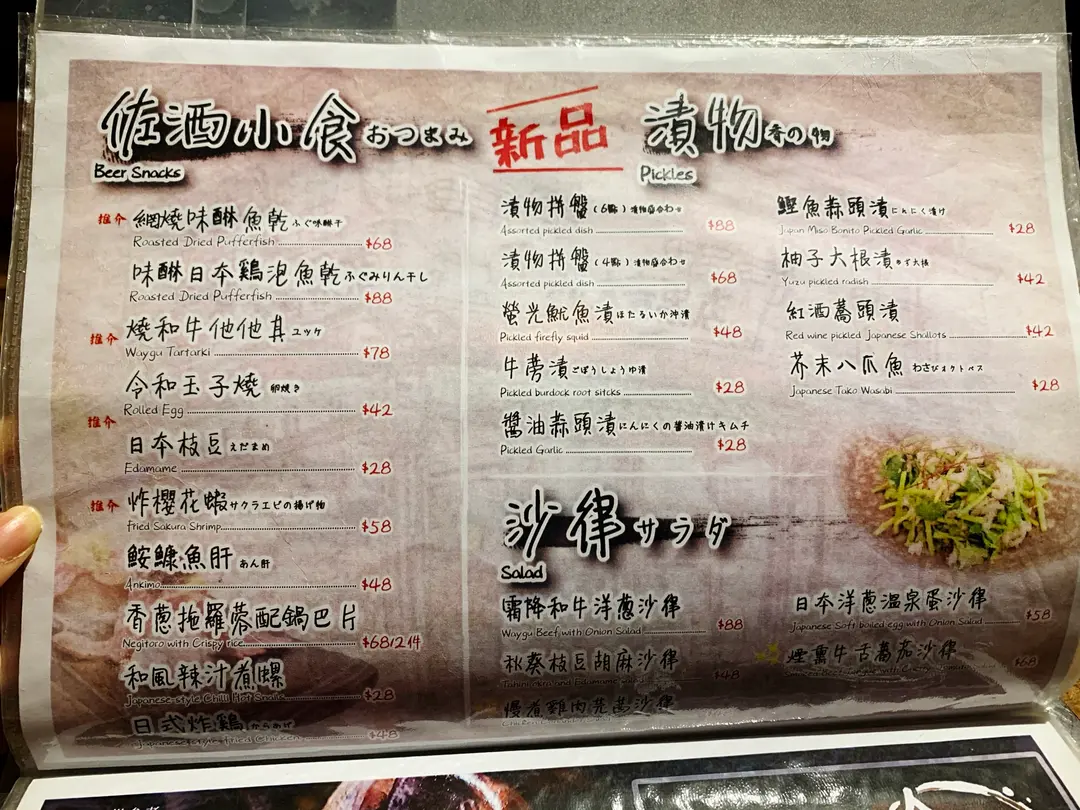 佐酒小食 おつまみ
Beer Snacks
新品
推介 網燒味醂魚乾 ふぐ味醂干
Roasted Dried Pufferfish $68
味醂日本鷄泡魚乾 ふぐみりん干し
Roasted Dried Pufferfish $88
推介 燒和牛他他丼 ユッケ
Waygu Tartarki $78
令和玉子燒 卵焼き
Rolled Egg $42
推介
日本枝豆 えだまめ
Edamame $28
推介 炸櫻花蝦 サクラエビの揚げ物
fried Sakura Shrimp $58
鮟鱇魚肝 あん肝
Ankimo $48
香蔥拖羅蓉配鍋巴片
Negitoro with Crispy rice $68/2件
和風辣汁煮螺
Japanese-style Chilli Hot Snails $28
日式炸鷄 からあげ
Japanese-style fried Chicken $48
漬物 香の物
Pickles
漬物拼盤 (6點) 漬物盛合わせ
Assorted pickled dish $88
漬物拼盤 (4點) 漬物盛合わせ
Assorted pickled dish $68
螢光魷魚漬 ほたるいか沖漬
Pickled firefly squid $48
牛蒡漬 ごぼうしょうゆ漬
Pickled burdock root sitcks $28
醬油蒜頭漬 にんにくの醤油漬けキムチ
Pickled Garlic $28
鰹魚蒜頭漬 にんにく漬け
Japan Miso Bonito Pickled Garlic $28
柚子大根漬 ゆず大根
Yuzu pickled radish $42
紅酒蕎頭漬
Red wine pickled Japanese Shallots $42
芥末八爪魚 わさびオクトパス
Japanese Tako Wasabi $28
沙律 サラダ
Salad
霜降和牛洋蔥沙律
Waygu Beef with Onion Salad $88
秋葵枝豆胡麻沙律
Tahini okra and Edamame salad $48
慢煮雞肉羌蔥沙律
日本洋蔥溫泉蛋沙律
Japanese Soft boiled egg with Onion Salad $58
煙燻牛舌蕃茄沙律
$68